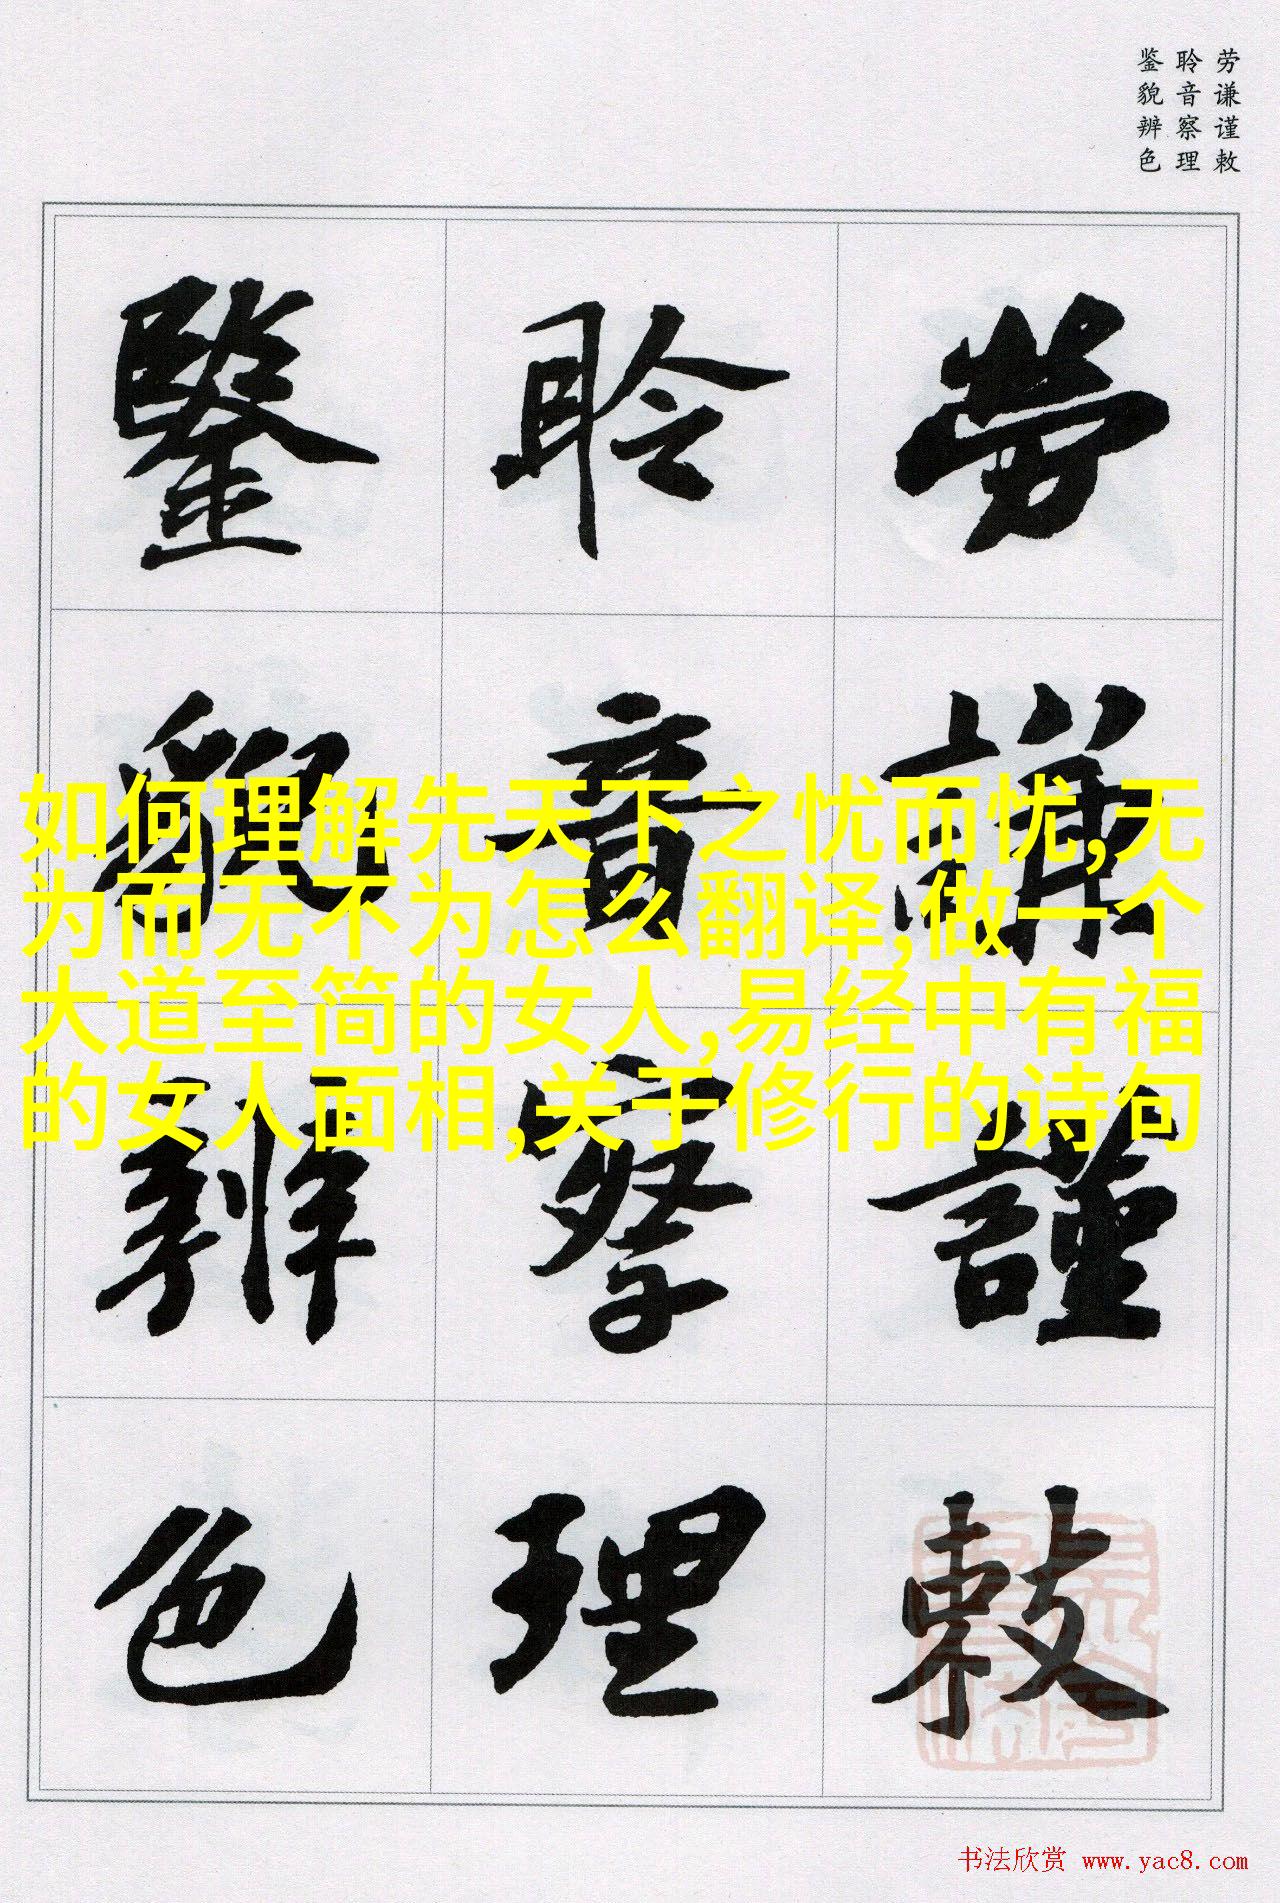 劳谦谨敕
聆音察理
鉴貌辨色
勞謙謹敕
聆音察理
鑒貌辨色
如何理解先天下之忧而忧,无
为而无不为怎么翻译,做一个
大道至简的女人,易经中有福
的女人面相,关于修行的诗句
书法欣赏 www.yac8.com